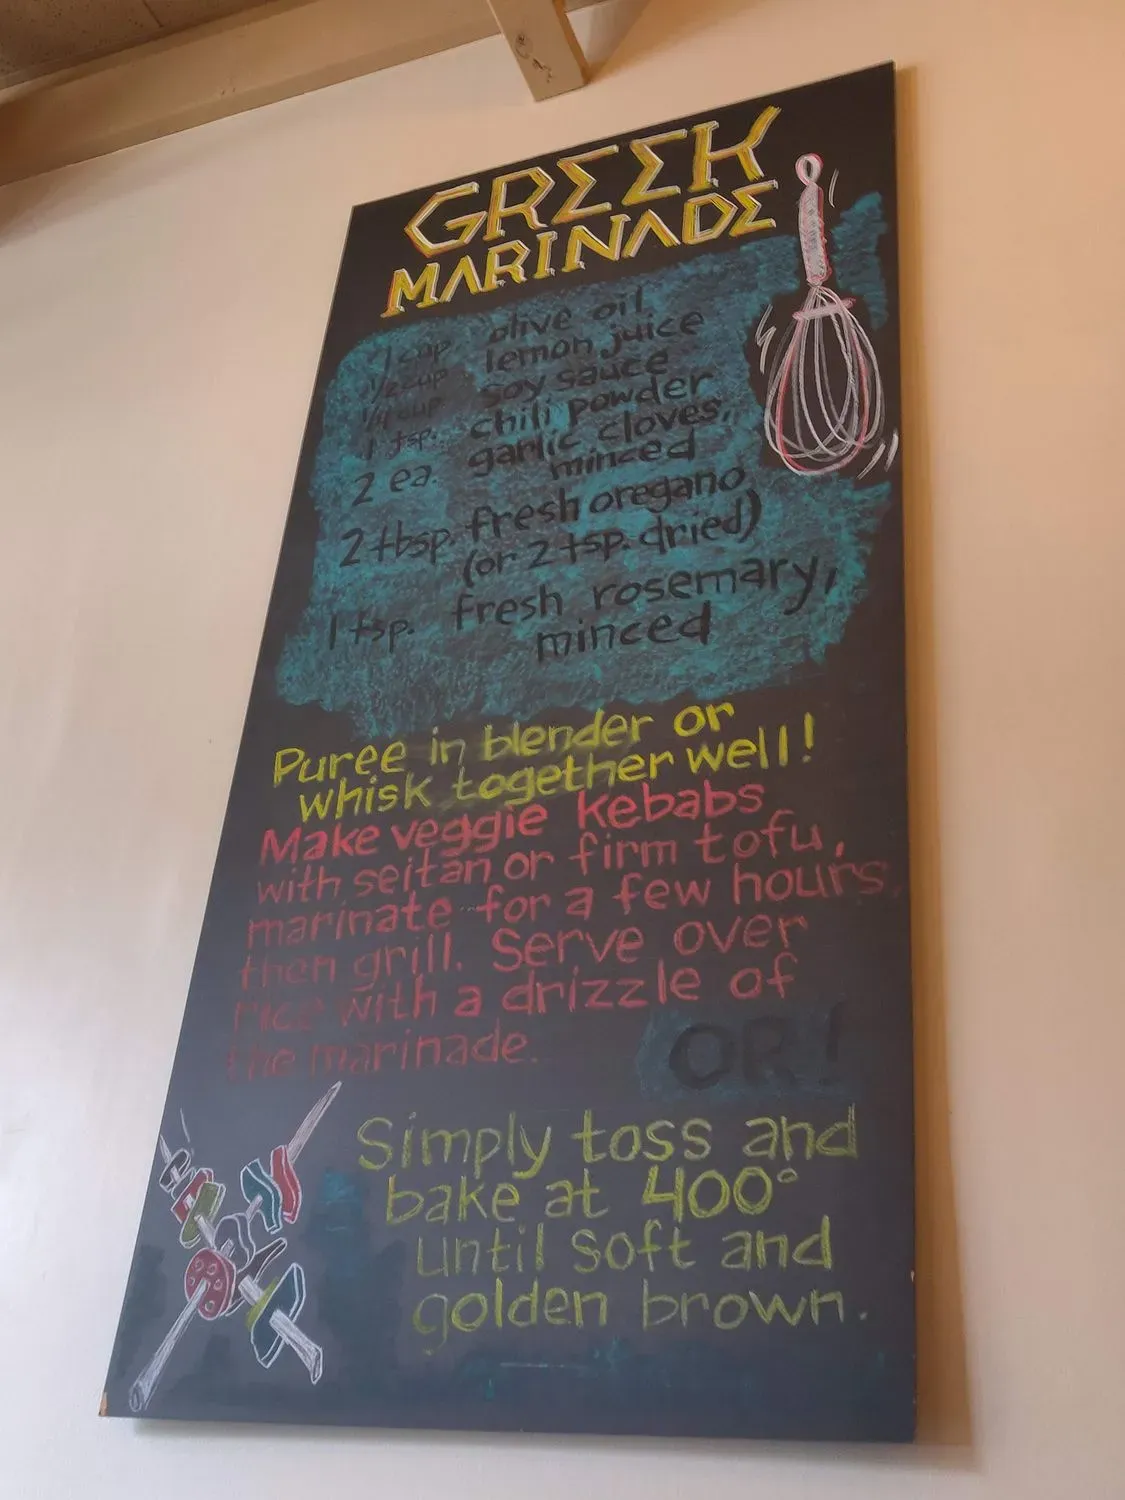 GREEK
MARINADE
1 cup olive oil
1/2 cup lemon juice
1/4 cup soy sauce
1 tsp. chili powder
2 ea. garlic cloves,
minced
2 tbsp. fresh oregano
(or 2 tsp. dried)
1 tsp. fresh rosemary,
minced
Puree in blender or
whisk together well!
Make veggie kebabs
with seitan or firm tofu,
marinate for a few hours,
then grill. Serve over
rice with a drizzle of
the marinade.
OR!
Simply toss and
bake at 400°
until soft and
golden brown.